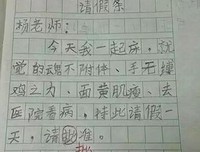 请假条
杨老师：
今天我一起床，就
觉的魂不附体、手无缚
鸡之力、面黄肌瘦、去
医院看病，特此请假一
天，请勿准。
批